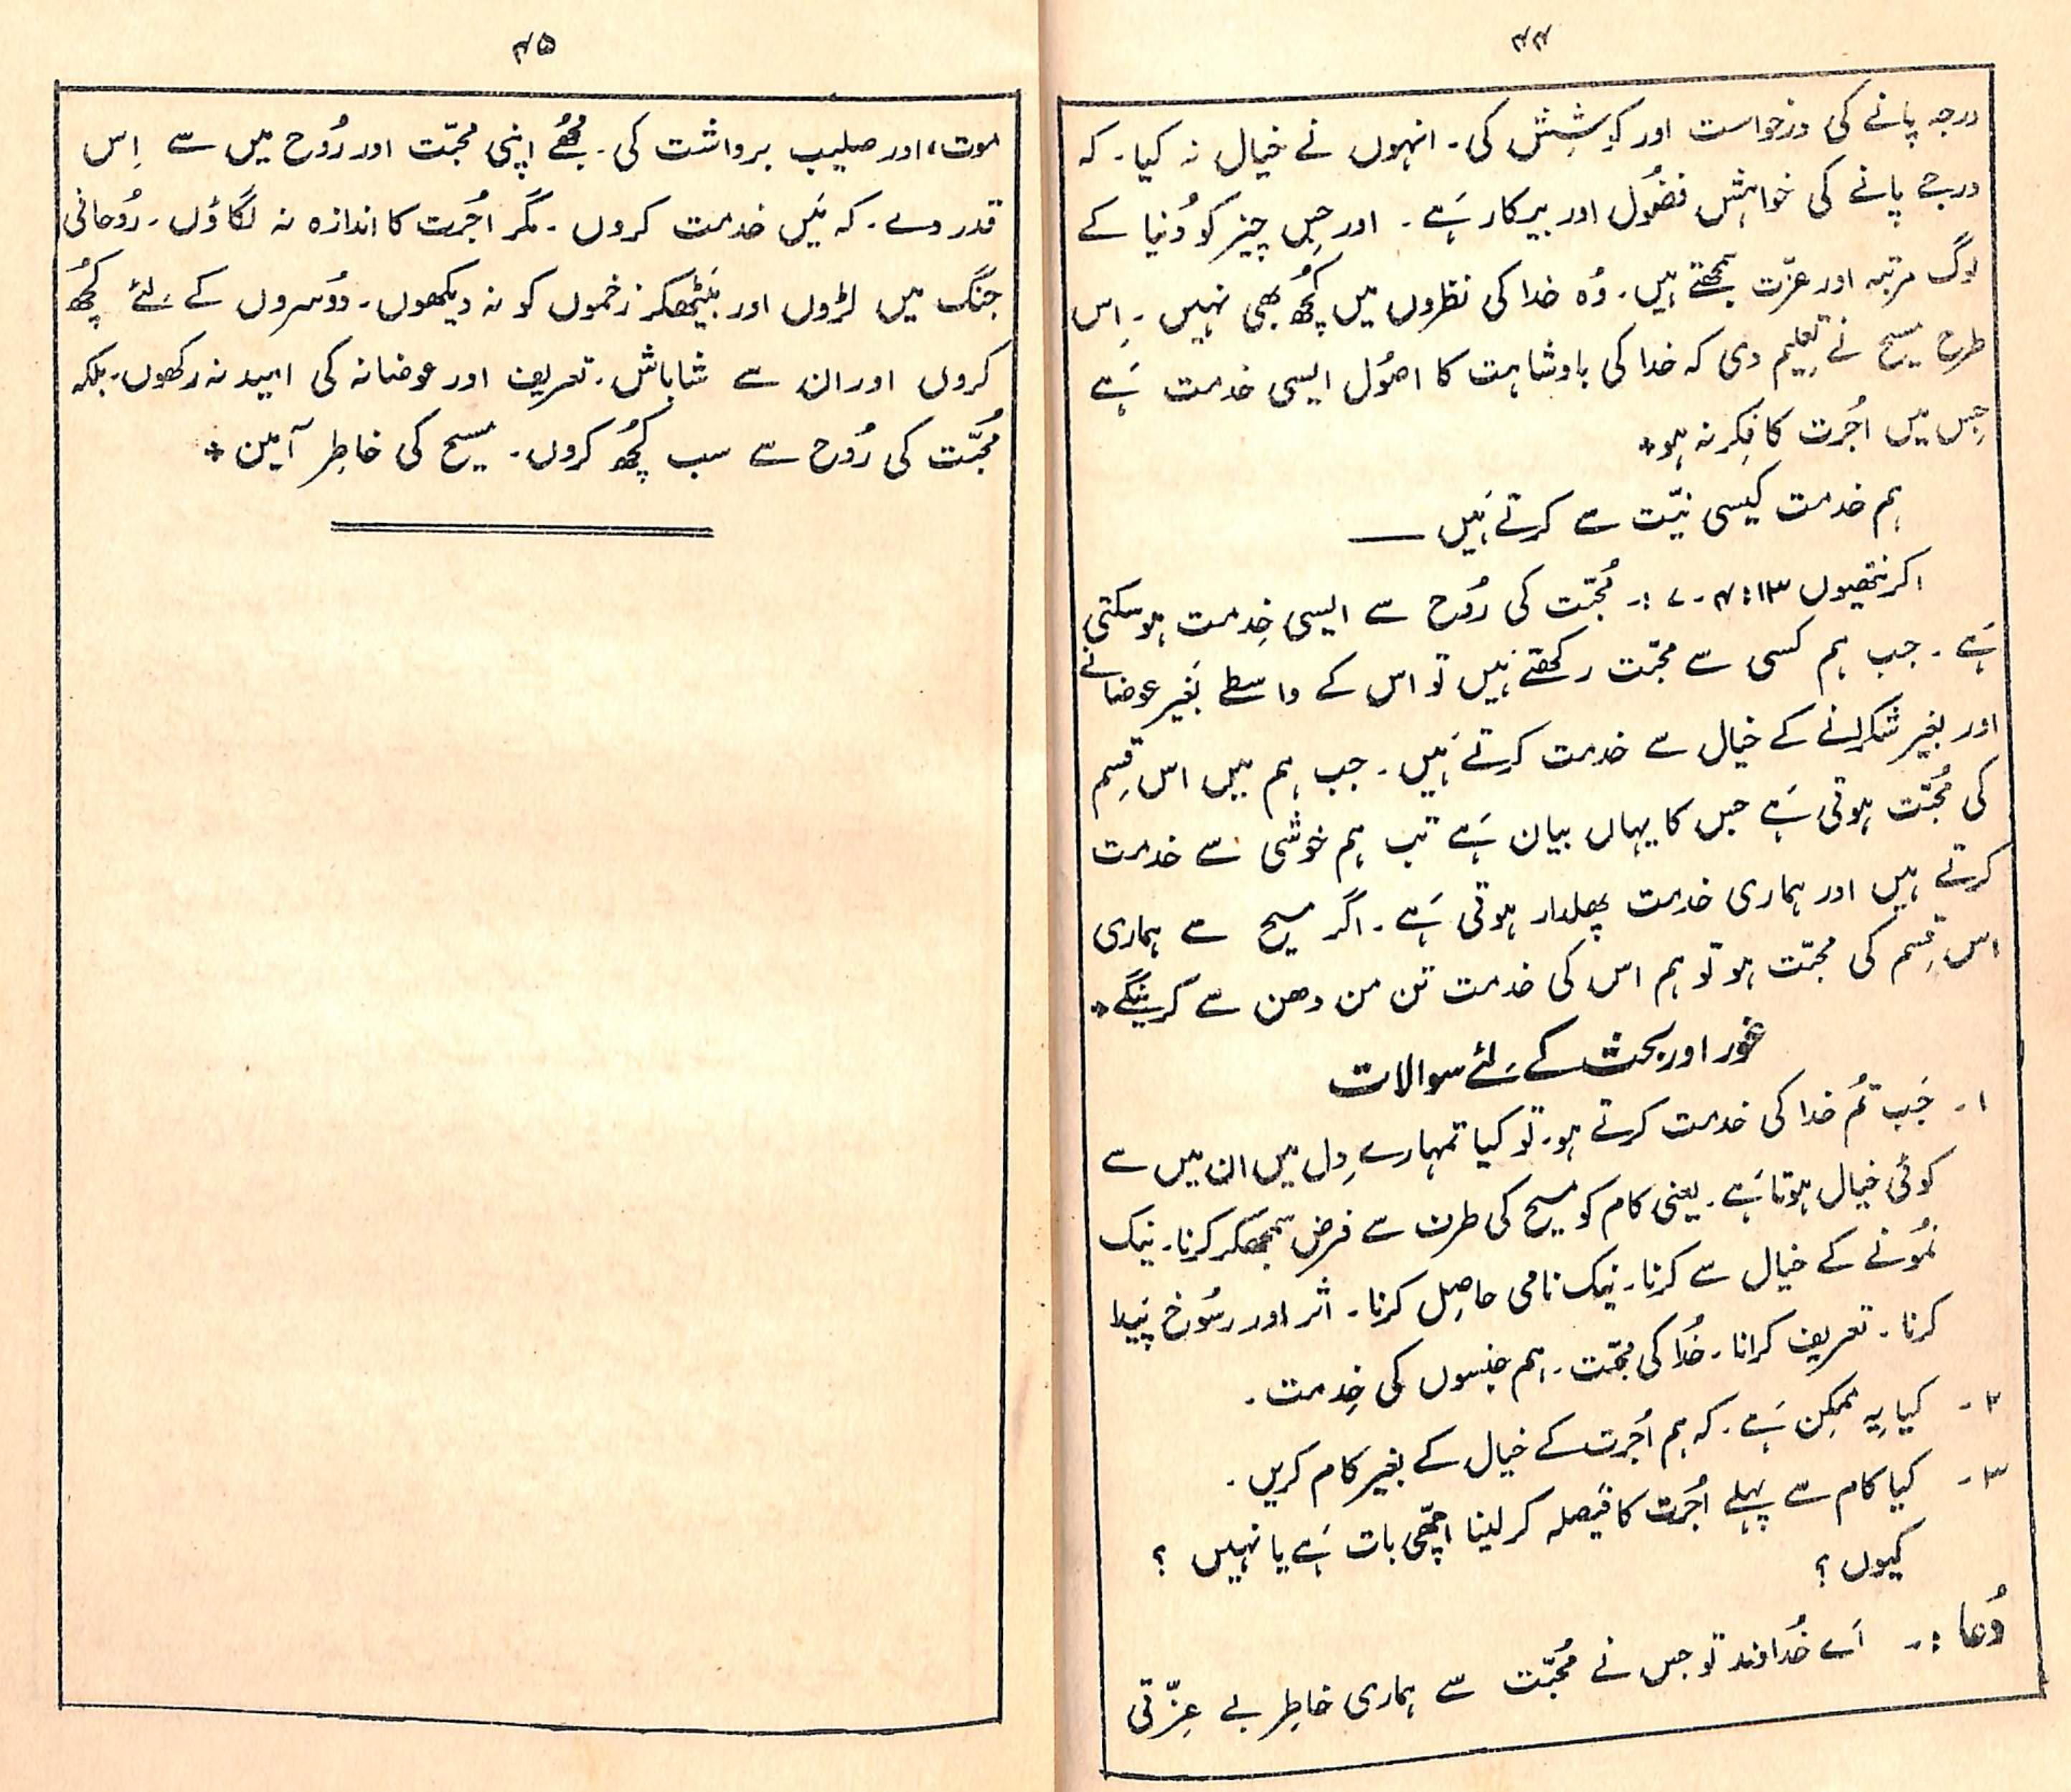 ۴۴
درجہ پانے کی درخواست اور کوشِش کی۔ انہوں نے خیال نہ کیا۔ کہ
درجے پانے کی خواہش فضُول اور بیکار ہَے۔ اور جِس چیز کو دُنیا کے
لوگ مرتبہ اور عزّت سمجھتے ہیں۔ وُہ خدا کی نظروں میں کُچھ بھی نہیں۔ اِس
طرح مسیح نے تعلِیم دی کہ خدا کی بادشاہت کا اصُول ایسی خدمت ہَے
جِس میں اُجُرت کا فِکر نہ ہو٭
ہم خدمت کیسی نیّت سے کرتے ہَیں ——
اکرنتھیوں ۱۳: ۴-۷ :۔ مُحبّت کی رُوح سے ایسی خِدمت ہو سکتی
ہَے۔ جب ہم کسی سے محبّت رکھتے ہَیں تو اس کے واسطے بَغیر عوضانے
اور بغیر شکرانے کے خیال سے خدمت کرتے ہَیں۔ جب ہم میں اس قِسم
کی مُحبّت ہوتی ہَے جس کا یہاں بیان ہَے تب ہم خوشی سے خدمت
کرتے ہیں اور ہماری خدمت پھلدار ہوتی ہَے۔ اگر مسیح سے ہماری
اس قِسم کی محبّت ہو تو ہم اس کی خدمت تن من دھن سے کرینگے٭
غور اور بحث کے لئے سوالات
۱۔ جَب تُم خدا کی خدمت کرتے ہو۔ تو کیا تمہارے دِل میں ان میں سے
کوئی خیال ہوتا ہَے۔ یعنی کام کو مسیح کی طرف سے فرض سمجھکر کرنا۔ نیک
نمُونے کے خیال سے کرنا۔ نیک نامی حاصِل کرنا۔ اثر اور رسُوخ پَیدا
کرنا۔ تعریف کرانا۔ خُدا کی محبّت۔ ہم جنسوں کی خِدمت۔
۲۔ کیا یہ ممکِن ہَے۔ کہ ہم اُجُرت کے خیال کے بغیر کام کریں۔
۳۔ کیا کام سے پہلے اُجُرت کا فَیصلہ کر لینا اچھّی بات ہَے یا نہیں ؟
کیوں ؟
دُعا :۔ اَے خُداوند تو جس نے مُحبّت سے ہماری خاطِر بے عِزّتی
۴۵
موت، اور صلیب برداشت کی۔ مُجھُے اپنی محبّت اور رُوح میں سے اِس
قدر دے۔ کہ مَیں خدمت کروں۔ مگر اُجُرت کا اندازہ نہ لگاؤں۔ رُوحانی
جنگ میں لڑوں اور بَیٹھکر زخموں کو نہ دیکھوں۔ دوُسروں کے لئے کُچھ
کروں اور ان سے شاباش۔ تعریف اور عوضانہ کی امید نہ رکھوں۔ بلکہ
مُحبّت کی رُوح سے سب کُچھ کروں۔ مسیح کی خاطِر آمین٭